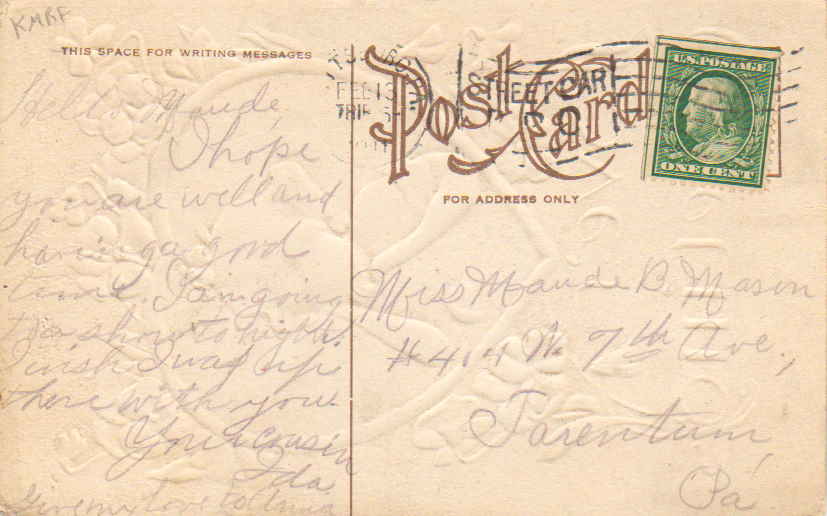 KMRF
THIS SPACE FOR WRITING MESSAGES
Post Card
FEB 13
STREET CAR
R.P.O.
U.S. POSTAGE
ONE CENT
FOR ADDRESS ONLY
Hello Maude,
I hope
you are well and
having a good
time. I am going
to a show to night.
I wish I was up
there with you.
Your cousin
Ida
Give my love to
Miss Maude B. Mason
#414 W. 7th Ave.,
Tarentum,
Pa.